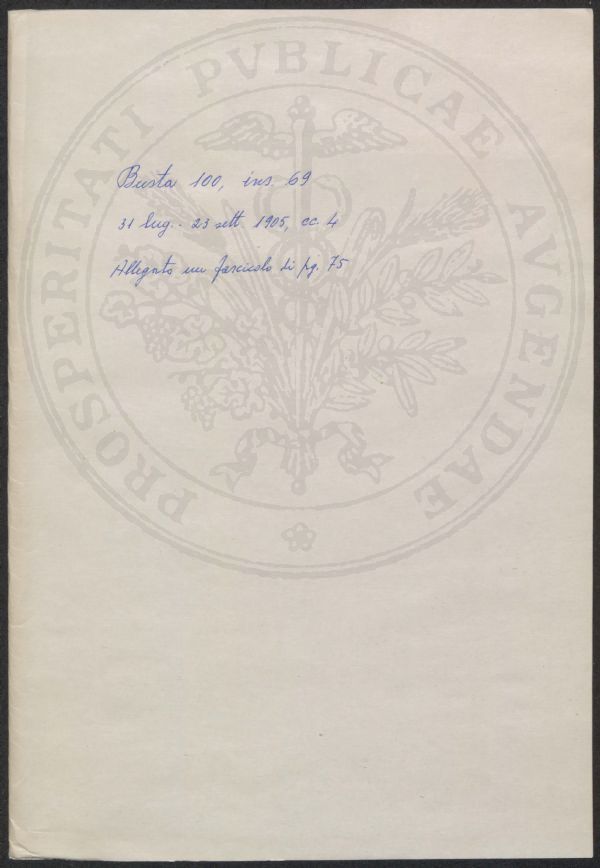 PROSPERITATI PVBLICAE AVGENDAE
Busta 100, ins. 69
31 lug. - 23 sett. 1905, cc. 4
Allegato un fascicolo di pg. 75